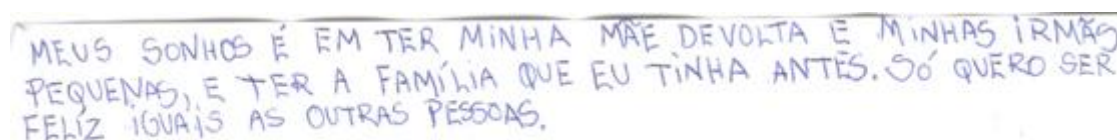 MEUS SONHOS É EM TER MINHA MÃE DEVOLTA E MINHAS IRMÃS
PEQUENAS, E TER A FAMÍLIA QUE EU TINHA ANTES. SÓ QUERO SER
FELIZ IGUAIS AS OUTRAS PESSOAS.